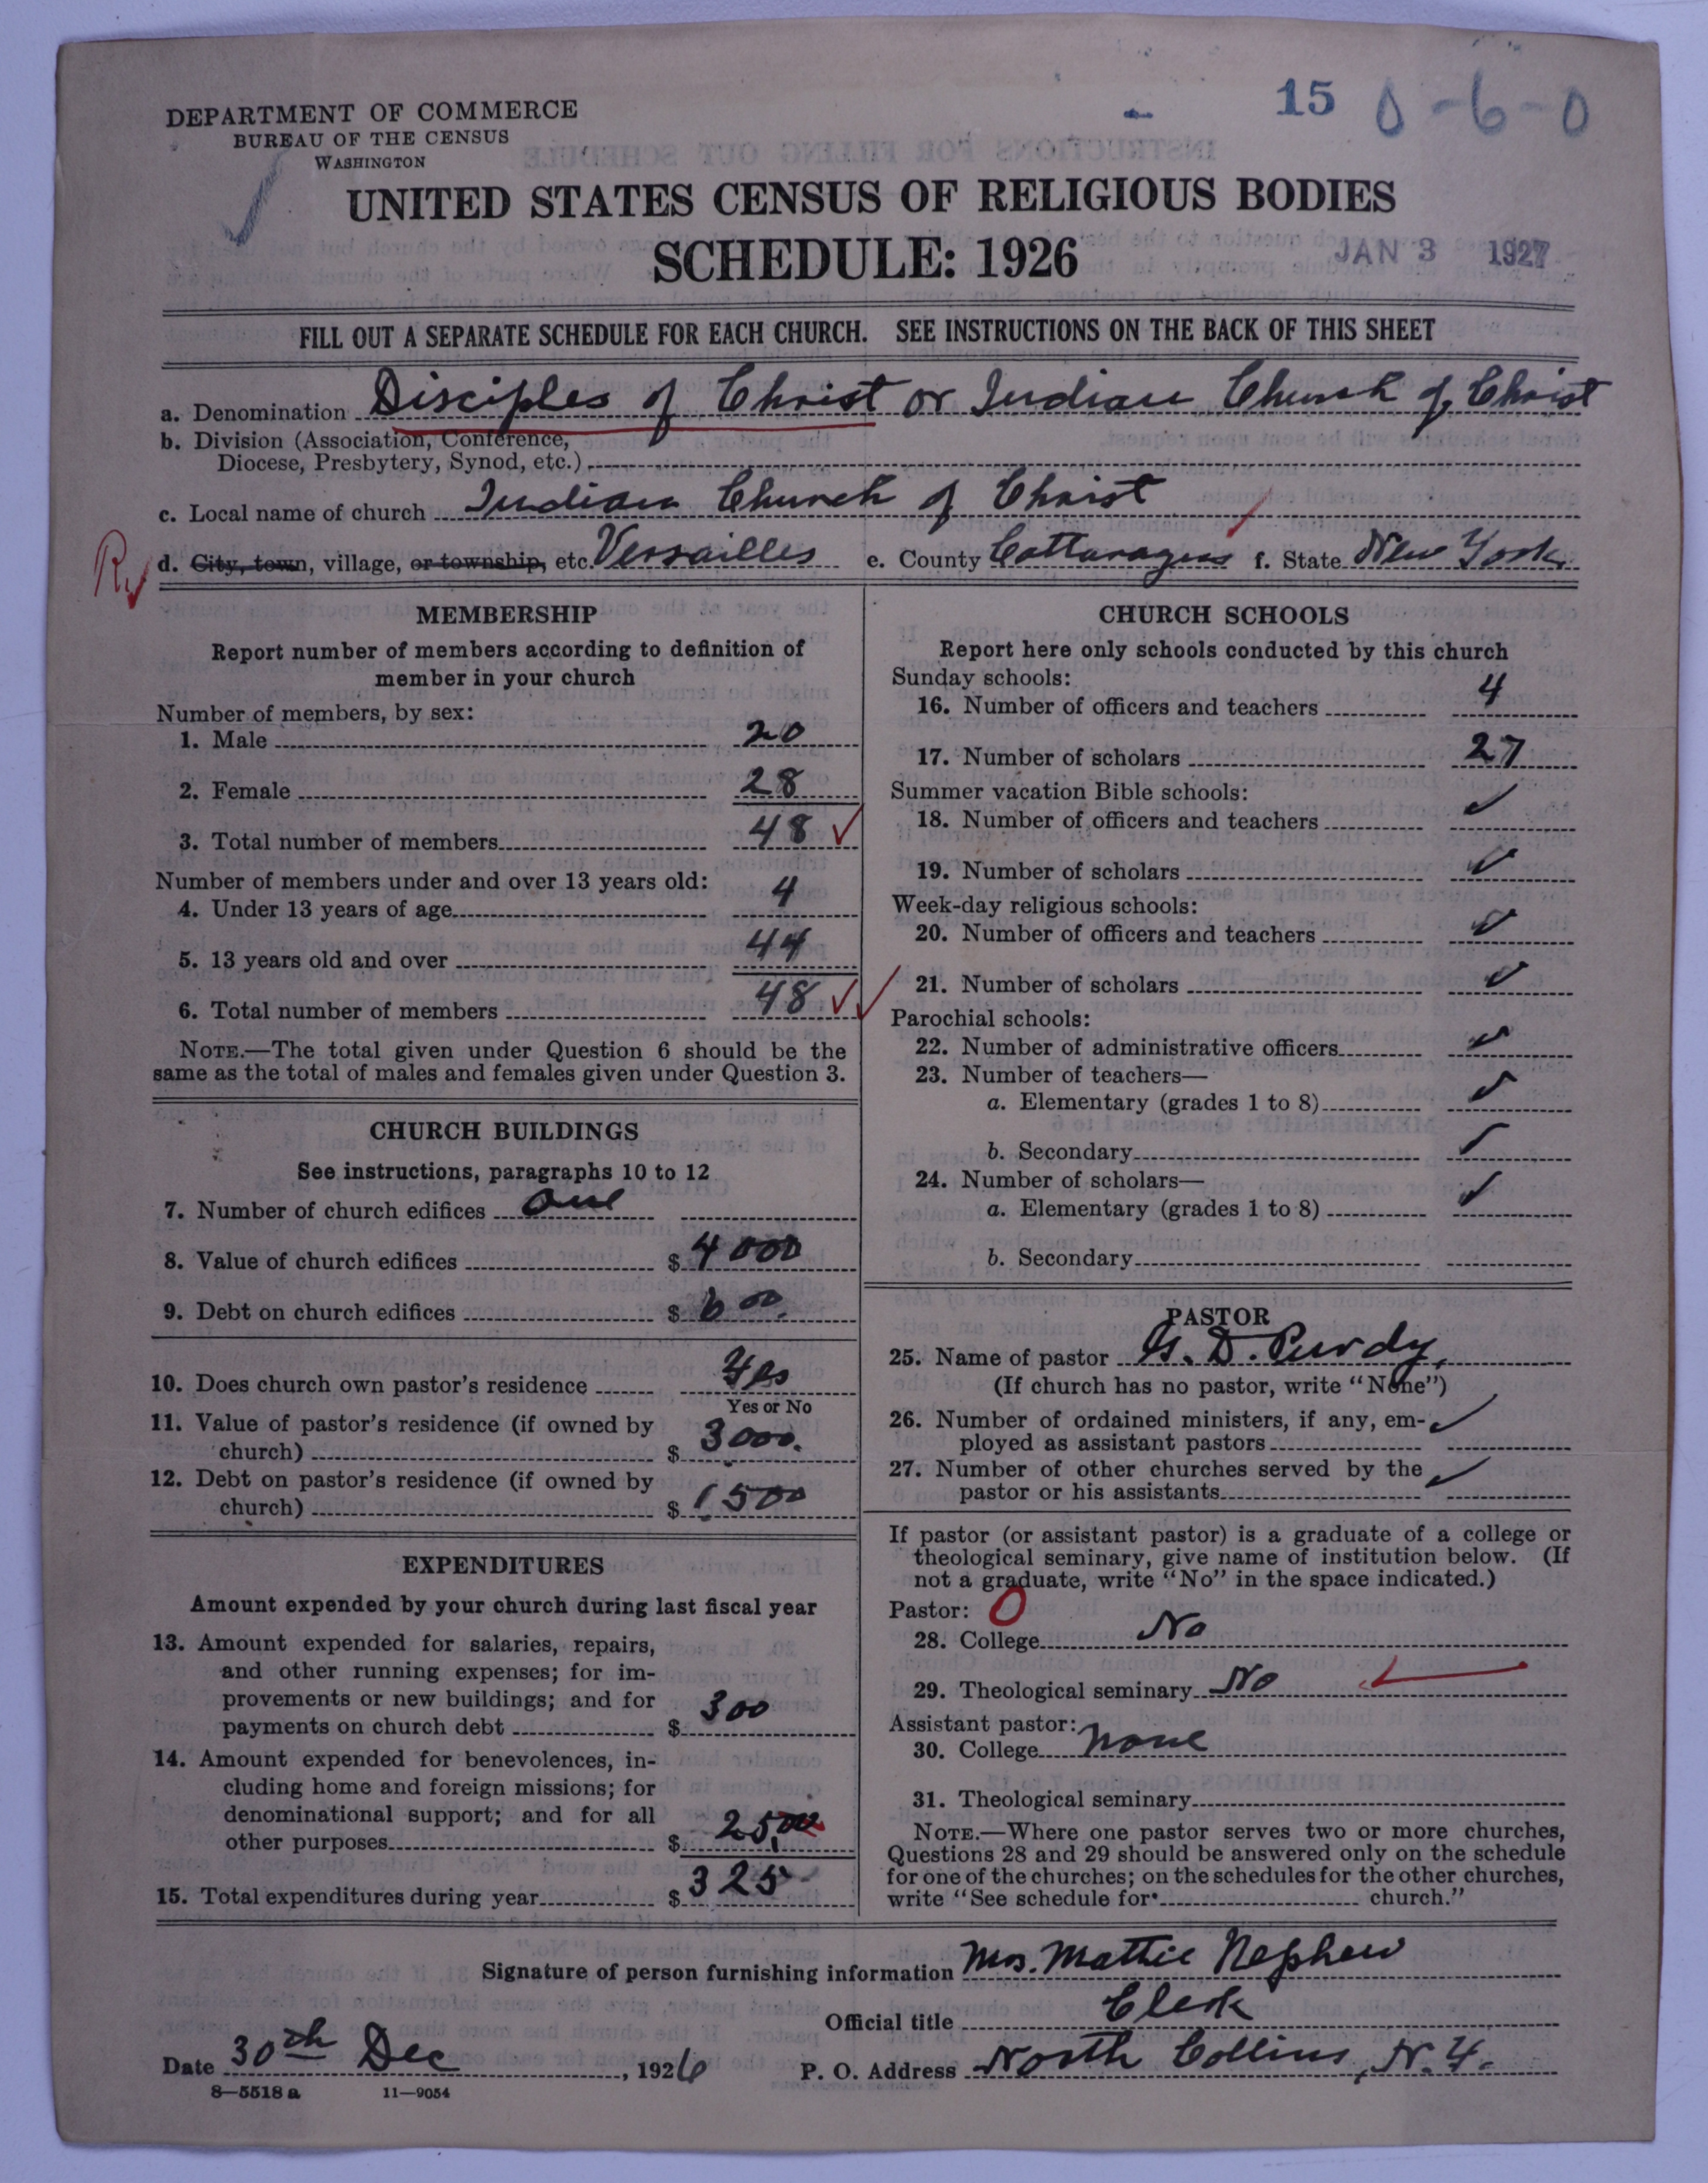 15 0-6-0
DEPARTMENT OF COMMERCE
BUREAU OF THE CENSUS
WASHINGTON
UNITED STATES CENSUS OF RELIGIOUS BODIES
SCHEDULE: 1926
JAN 3 1927
FILL OUT A SEPARATE SCHEDULE FOR EACH CHURCH. SEE INSTRUCTIONS ON THE BACK OF THIS SHEET
a. Denomination Disciples of Christ or Indian Church of Christ
b. Division (Association, Conference,
Diocese, Presbytery, Synod, etc.)
c. Local name of church Indian Church of Christ
d. City, town, village, or township, etc. Versailles e. County Cattaraugus f. State New York
MEMBERSHIP
Report number of members according to definition of
member in your church
Number of members, by sex:
1. Male 20
2. Female 28
3. Total number of members 48
Number of members under and over 13 years old:
4. Under 13 years of age 4
5. 13 years old and over 44
6. Total number of members 48
NOTE.—The total given under Question 6 should be the
same as the total of males and females given under Question 3.
CHURCH BUILDINGS
See instructions, paragraphs 10 to 12
7. Number of church edifices one
8. Value of church edifices $ 4000
9. Debt on church edifices $ 600.
10. Does church own pastor's residence Yes
Yes or No
11. Value of pastor's residence (if owned by
church) $ 3000.
12. Debt on pastor's residence (if owned by
church) $ 1500
EXPENDITURES
Amount expended by your church during last fiscal year
13. Amount expended for salaries, repairs,
and other running expenses; for im-
provements or new buildings; and for
payments on church debt $ 300
14. Amount expended for benevolences, in-
cluding home and foreign missions; for
denominational support; and for all
other purposes $ 25,00
15. Total expenditures during year $ 325
CHURCH SCHOOLS
Report here only schools conducted by this church
Sunday schools:
16. Number of officers and teachers 4
17. Number of scholars 27
Summer vacation Bible schools:
18. Number of officers and teachers ✓
19. Number of scholars ✓
Week-day religious schools:
20. Number of officers and teachers ✓
21. Number of scholars ✓
Parochial schools:
22. Number of administrative officers ✓
23. Number of teachers—
a. Elementary (grades 1 to 8) ✓
b. Secondary ✓
24. Number of scholars—
a. Elementary (grades 1 to 8) ✓
b. Secondary
PASTOR
25. Name of pastor G. D. Purdy,
(If church has no pastor, write "None")
26. Number of ordained ministers, if any, em- ✓
ployed as assistant pastors
27. Number of other churches served by the ✓
pastor or his assistants
If pastor (or assistant pastor) is a graduate of a college or
theological seminary, give name of institution below. (If
not a graduate, write "No" in the space indicated.)
Pastor: 0
28. College No
29. Theological seminary No
Assistant pastor:
30. College none
31. Theological seminary
NOTE.—Where one pastor serves two or more churches,
Questions 28 and 29 should be answered only on the schedule
for one of the churches; on the schedules for the other churches,
write "See schedule for church."
Signature of person furnishing information Mrs. Mattie Nephew
Official title Clerk
Date 30th Dec, 1926 P. O. Address North Collins, N.Y.
8—5518 a 11—9054